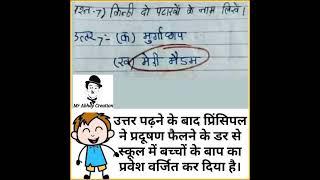 प्रश्न-7) किन्ही दो पटाखों के नाम लिखें।
उत्तर 7:- (क) मुर्गाछाप
(ख) मेरी मैडम
Mr Abhay Creation
उत्तर पढ़ने के बाद प्रिंसिपल
ने प्रदूषण फैलने के डर से
स्कूल में बच्चों के बाप का
प्रवेश वर्जित कर दिया है।